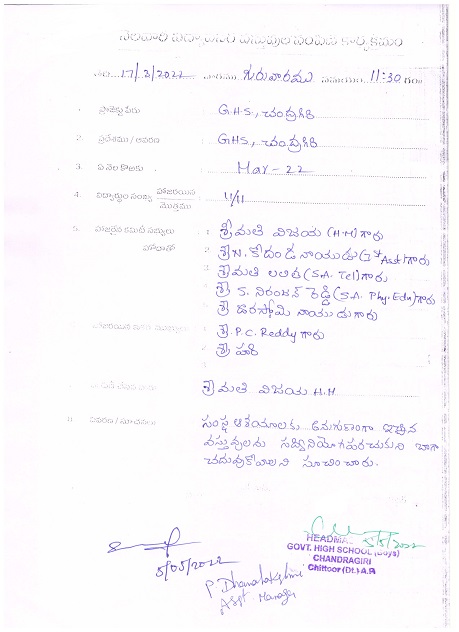 నెలవారీ విద్యా వస్తువుల పంపిణీ కార్యక్రమం
తేది 17/3/2022 వారము గురువారము సమయం 11:30 గం॥
1. ప్రాజెక్టు పేరు : G.H.S., చంద్రగిరి
2. ప్రదేశము / ఆవరణ : GHS, చంద్రగిరి
3. ఏ నెల కొరకు : Mar - 22
4. విద్యార్థుల సంఖ్య హాజరయిన / మొత్తము : 4/11
5. హాజరైన కమిటీ సభ్యులు 1. శ్రీమతి విజయ (H.M) గారు
హోదాలో 2. శ్రీ N. కోదండ నాయుడు (Asst) గారు
శ్రీమతి లలిత (S.A. Tel) గారు
శ్రీ S. నిరంజన్ రెడ్డి (S.A. Phy. Edn) గారు
శ్రీ దొరస్వామి నాయుడు గారు
శ్రీ. P.C. Reddy గారు
శ్రీ హరి
శ్రీమతి విజయ H.M
వివరణ / సూచనలు : సంస్థ ఆశయాలకు అనుగుణంగా ఇచ్చిన
వస్తువులను సద్వినియోగపరచుకుని బాగా
చదువుకోవాలని సూచించారు.
5/05/2022
P. Dhanalakshmi
Asst. Manager
5/5/2022
HEADMA
GOVT. HIGH SCHOOL (Boys)
CHANDRAGIRI
Chittoor (Dt.) A.P.